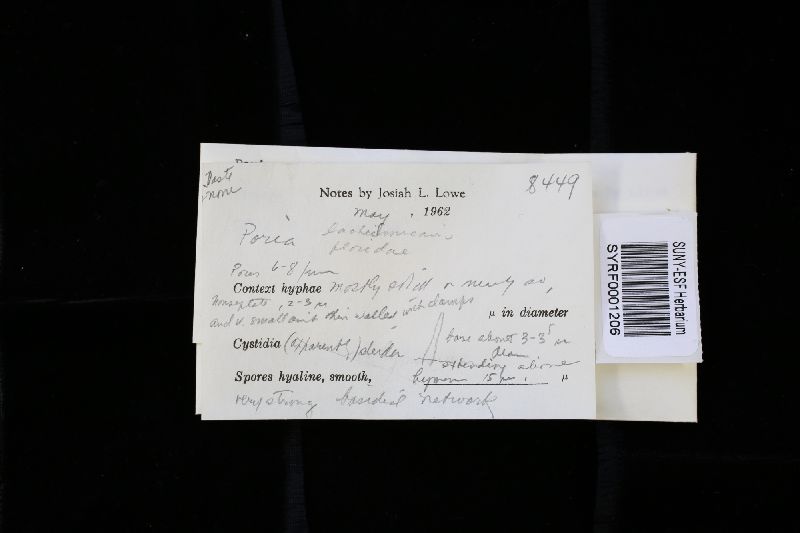 Taste none
Notes by Josiah L. Lowe
8449
May, 1962
Poria
floridae
Pores 6-8/mm
Context hyphae mostly solid or nearly so,
nonseptate, 2-3 µ
and v. small amt thin walled with clamps
µ in diameter
Cystidia (apparently)
base about 3-3.5 µ
diam
extending above
Spores hyaline, smooth,
hymen 15 µ.
µ
very strong basidial network
SUNY-ESF Herbarium
SYRF0001206